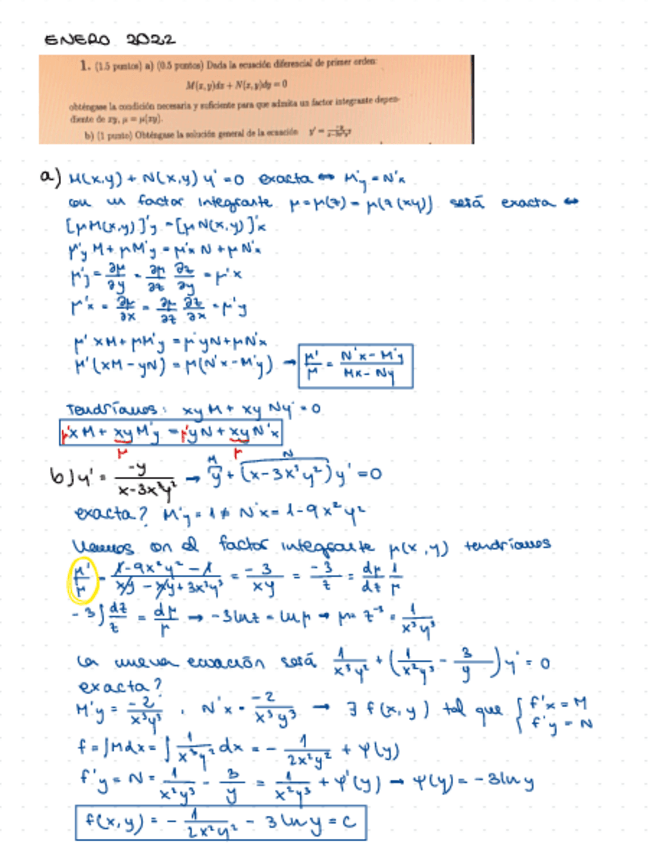 ENERO 2022
1. (1.5 puntos) a) (0.5 puntos) Dada la ecuación diferencial de primer orden:
M(x,y)dx + N(x,y)dy = 0
obténgase la condición necesaria y suficiente para que admita un factor integrante depen-
diente de xy, μ = μ(xy).
b) (1 punto) Obténgase la solución general de la ecuación y' = -y/(x-3x³y²)
a) M(x,y) + N(x,y) y' = 0 exacta ⇔ M'y = N'x
con un factor integrante μ = μ(z) = μ(z(xy)) será exacta ⇔
[μM(x,y)]'y = [μN(x,y)]'x
μ'y M + μM'y = μ'x N + μN'x
μ'y = ∂μ/∂y = ∂μ/∂z ∂z/∂y = μ'x
μ'x = ∂μ/∂x = ∂μ/∂z ∂z/∂x = μ'y
μ' xM + μM'y = μ'yN + μN'x
μ'(xM - yN) = μ(N'x - M'y) → μ'/μ = (N'x - M'y)/(Mx - Ny)
Tendríamos: xy M + xy N y' = 0
μ'x M + xy M'y = μ'y N + xy N'x
μ μ
M N
b) y' = -y/(x-3x³y²) → y + (x-3x³y²) y' = 0
exacta? M'y = 1 ≠ N'x = 1-9x²y²
Vemos con el factor integrante μ(x,y) tendríamos
μ'/μ = (1-9x²y²-1)/(xy-xy+3x³y³) = -3/xy = -3/z = dμ/dz 1/μ
-3∫dz/z = dμ/μ → -3lnz = lnμ → μ = z⁻³ = 1/x³y³
La nueva ecuación será 1/x³y² + (1/x²y³ - 3/y) y' = 0
exacta?
M'y = -2/x³y³, N'x = -2/x³y³ → ∃ f(x,y) tal que { f'x = M
f'y = N
f = ∫Mdx = ∫1/x³y² dx = -1/2x²y² + φ(y)
f'y = N = 1/x²y³ - 3/y = 1/x²y³ + φ'(y) → φ(y) = -3lny
f(x,y) = -1/2x²y² - 3lny = C